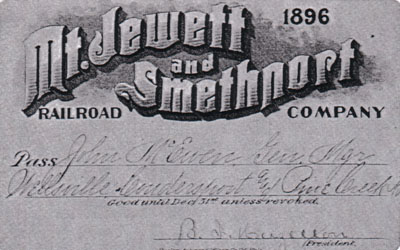 1896
Mt. Jewett
and
Smethport
RAILROAD COMPANY
Pass John McEwen Gen. Mgr.
Wellsville Coudersport & Pine Creek
Good until Dec. 31st unless revoked.
President.